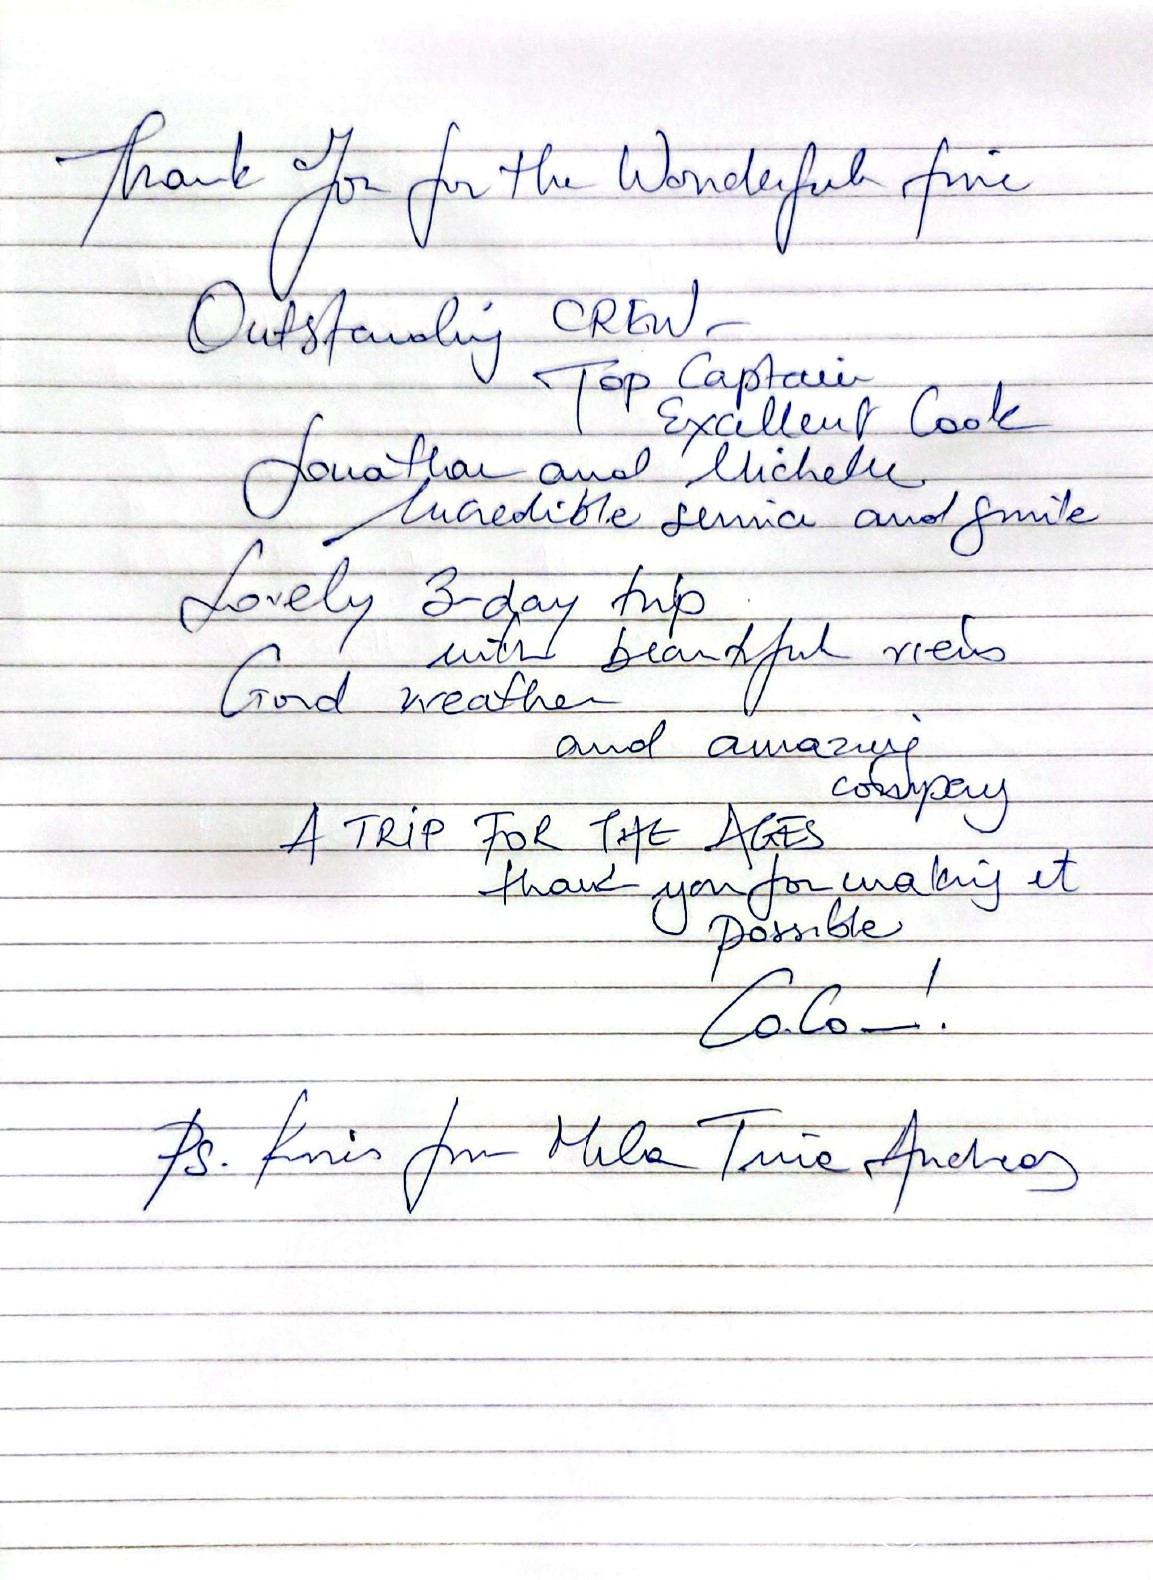 Thank You for the Wonderful time
Outstanding CREW -
Top Captain
Excellent Cook
Jonathan and Michelle
Incredible service and smile
Lovely 3-day trip
with beautiful views
Good weather
and amazing
company
A TRIP FOR THE AGES
thank you for making it
possible
CoCo !
Ps. from Mila Tina Andreas